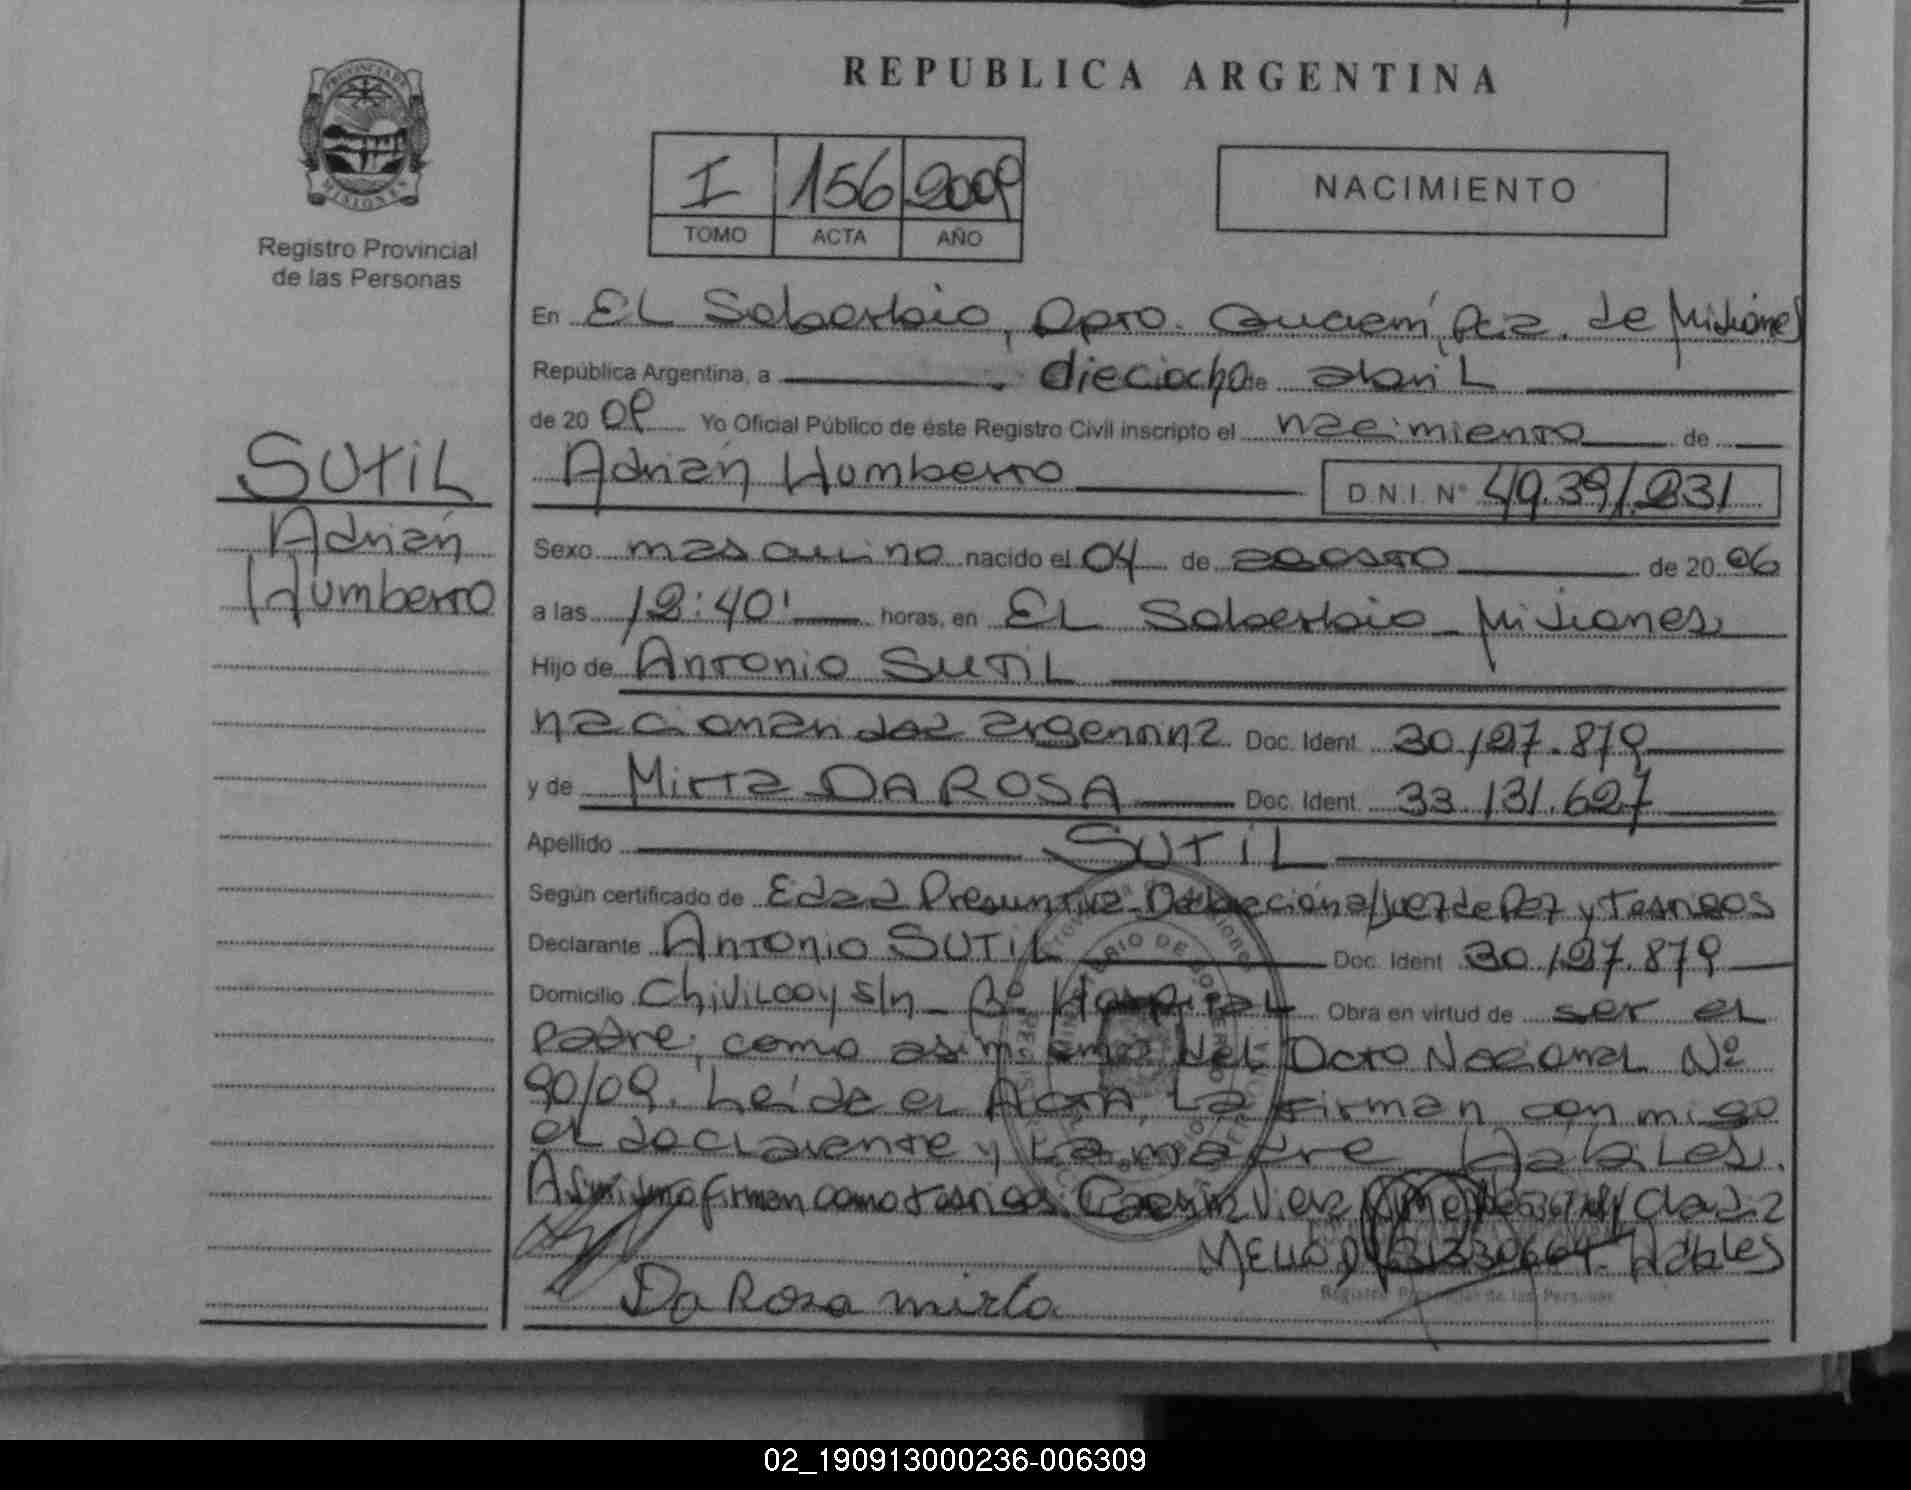 REPUBLICA ARGENTINA
PROVINCIA DE
MISIONES
Registro Provincial
de las Personas
I 156 2009
TOMO ACTA AÑO
NACIMIENTO
En EL Soberbio, Dpto. Guaraní, Pcia. de Misiones
República Argentina, a dieciocho de abril
de 2009 Yo Oficial Público de éste Registro Civil inscripto el nacimiento de
Adrián Humberto D.N.I. N° 49.391.231
SUTIL
Adrián
Humberto
Sexo masculino nacido el 04 de agosto de 2006
a las 12:40' horas, en EL Soberbio - Misiones
Hijo de Antonio SUTIL
nacionalidad argentina Doc. Ident. 30.127.879
y de Mirta DA ROSA Doc. Ident. 33.131.627
Apellido SUTIL
Según certificado de Edad Presuntiva - Juez de Paz y Testigos
Declarante Antonio SUTIL Doc. Ident 30.127.879
Domicilio Chivilcoy s/n - Bº Hospital Obra en virtud de ser el
padre, como asimismo del Dcto Nacional Nº
90/09. Leída el Acta, La firman conmigo
el declarante y La madre Hábiles.
Asimismo firman como testigos
Da Rosa mirta
Hábiles
Registro Provincial de las Personas
02_190913000236-006309